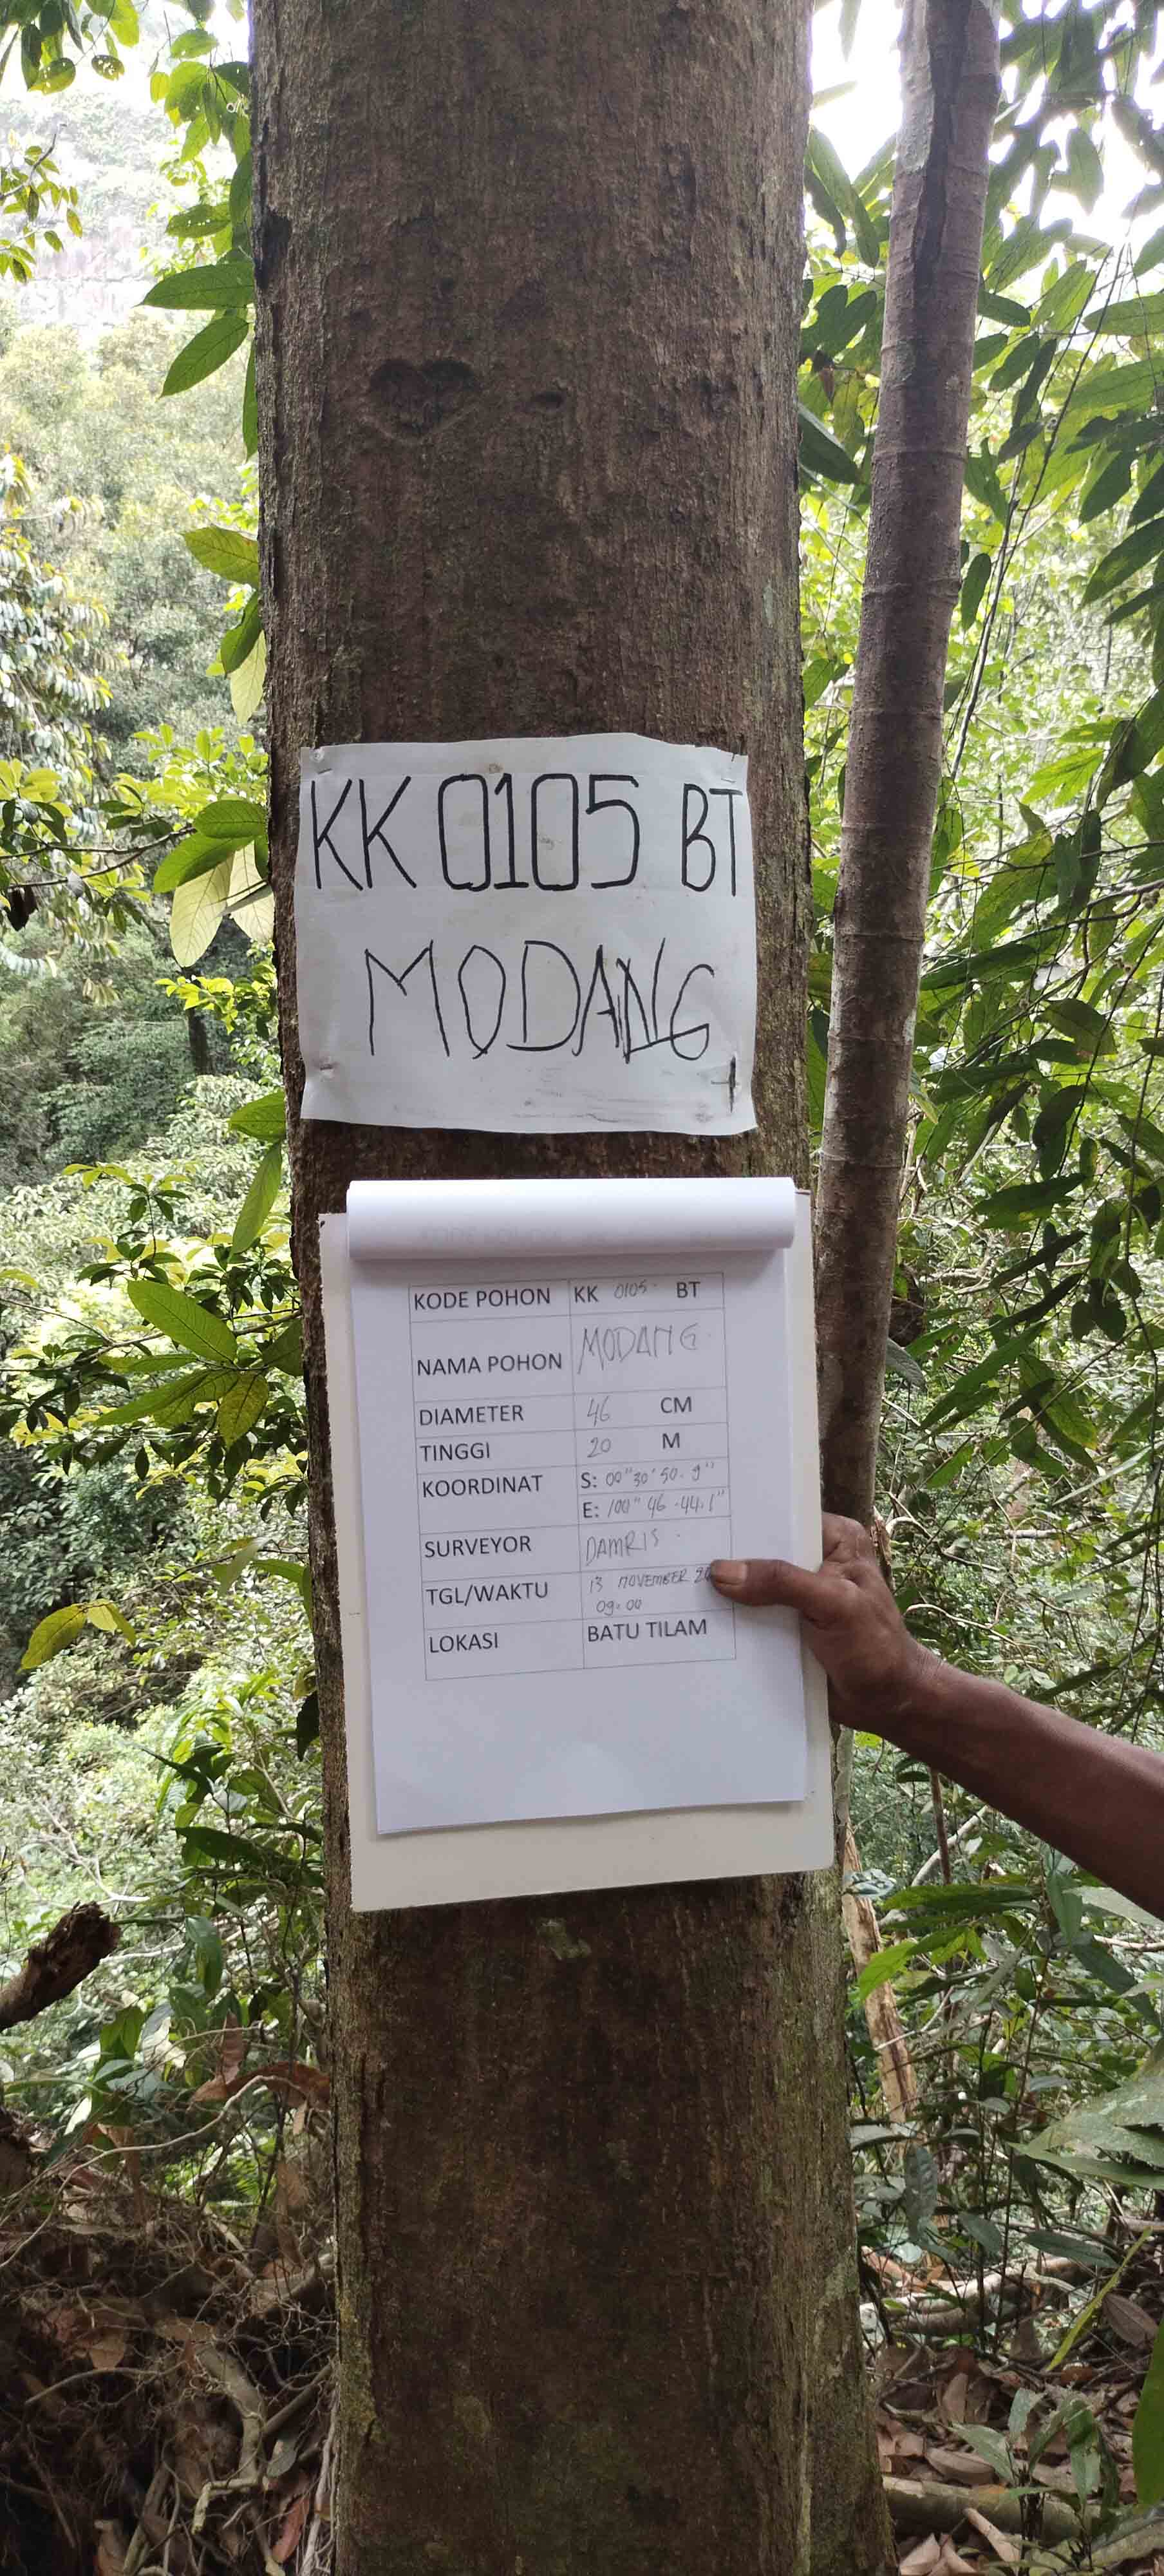 KK 0105 BT
MODANG
KODE POHON KK 0105 BT
NAMA POHON MODANG
DIAMETER 46 CM
TINGGI 20 M
KOORDINAT S: 00"30'50.9"
E: 100" 46 .44.1"
SURVEYOR DAMRIS
TGL/WAKTU 13 NOVEMBER
09:00
LOKASI BATU TILAM